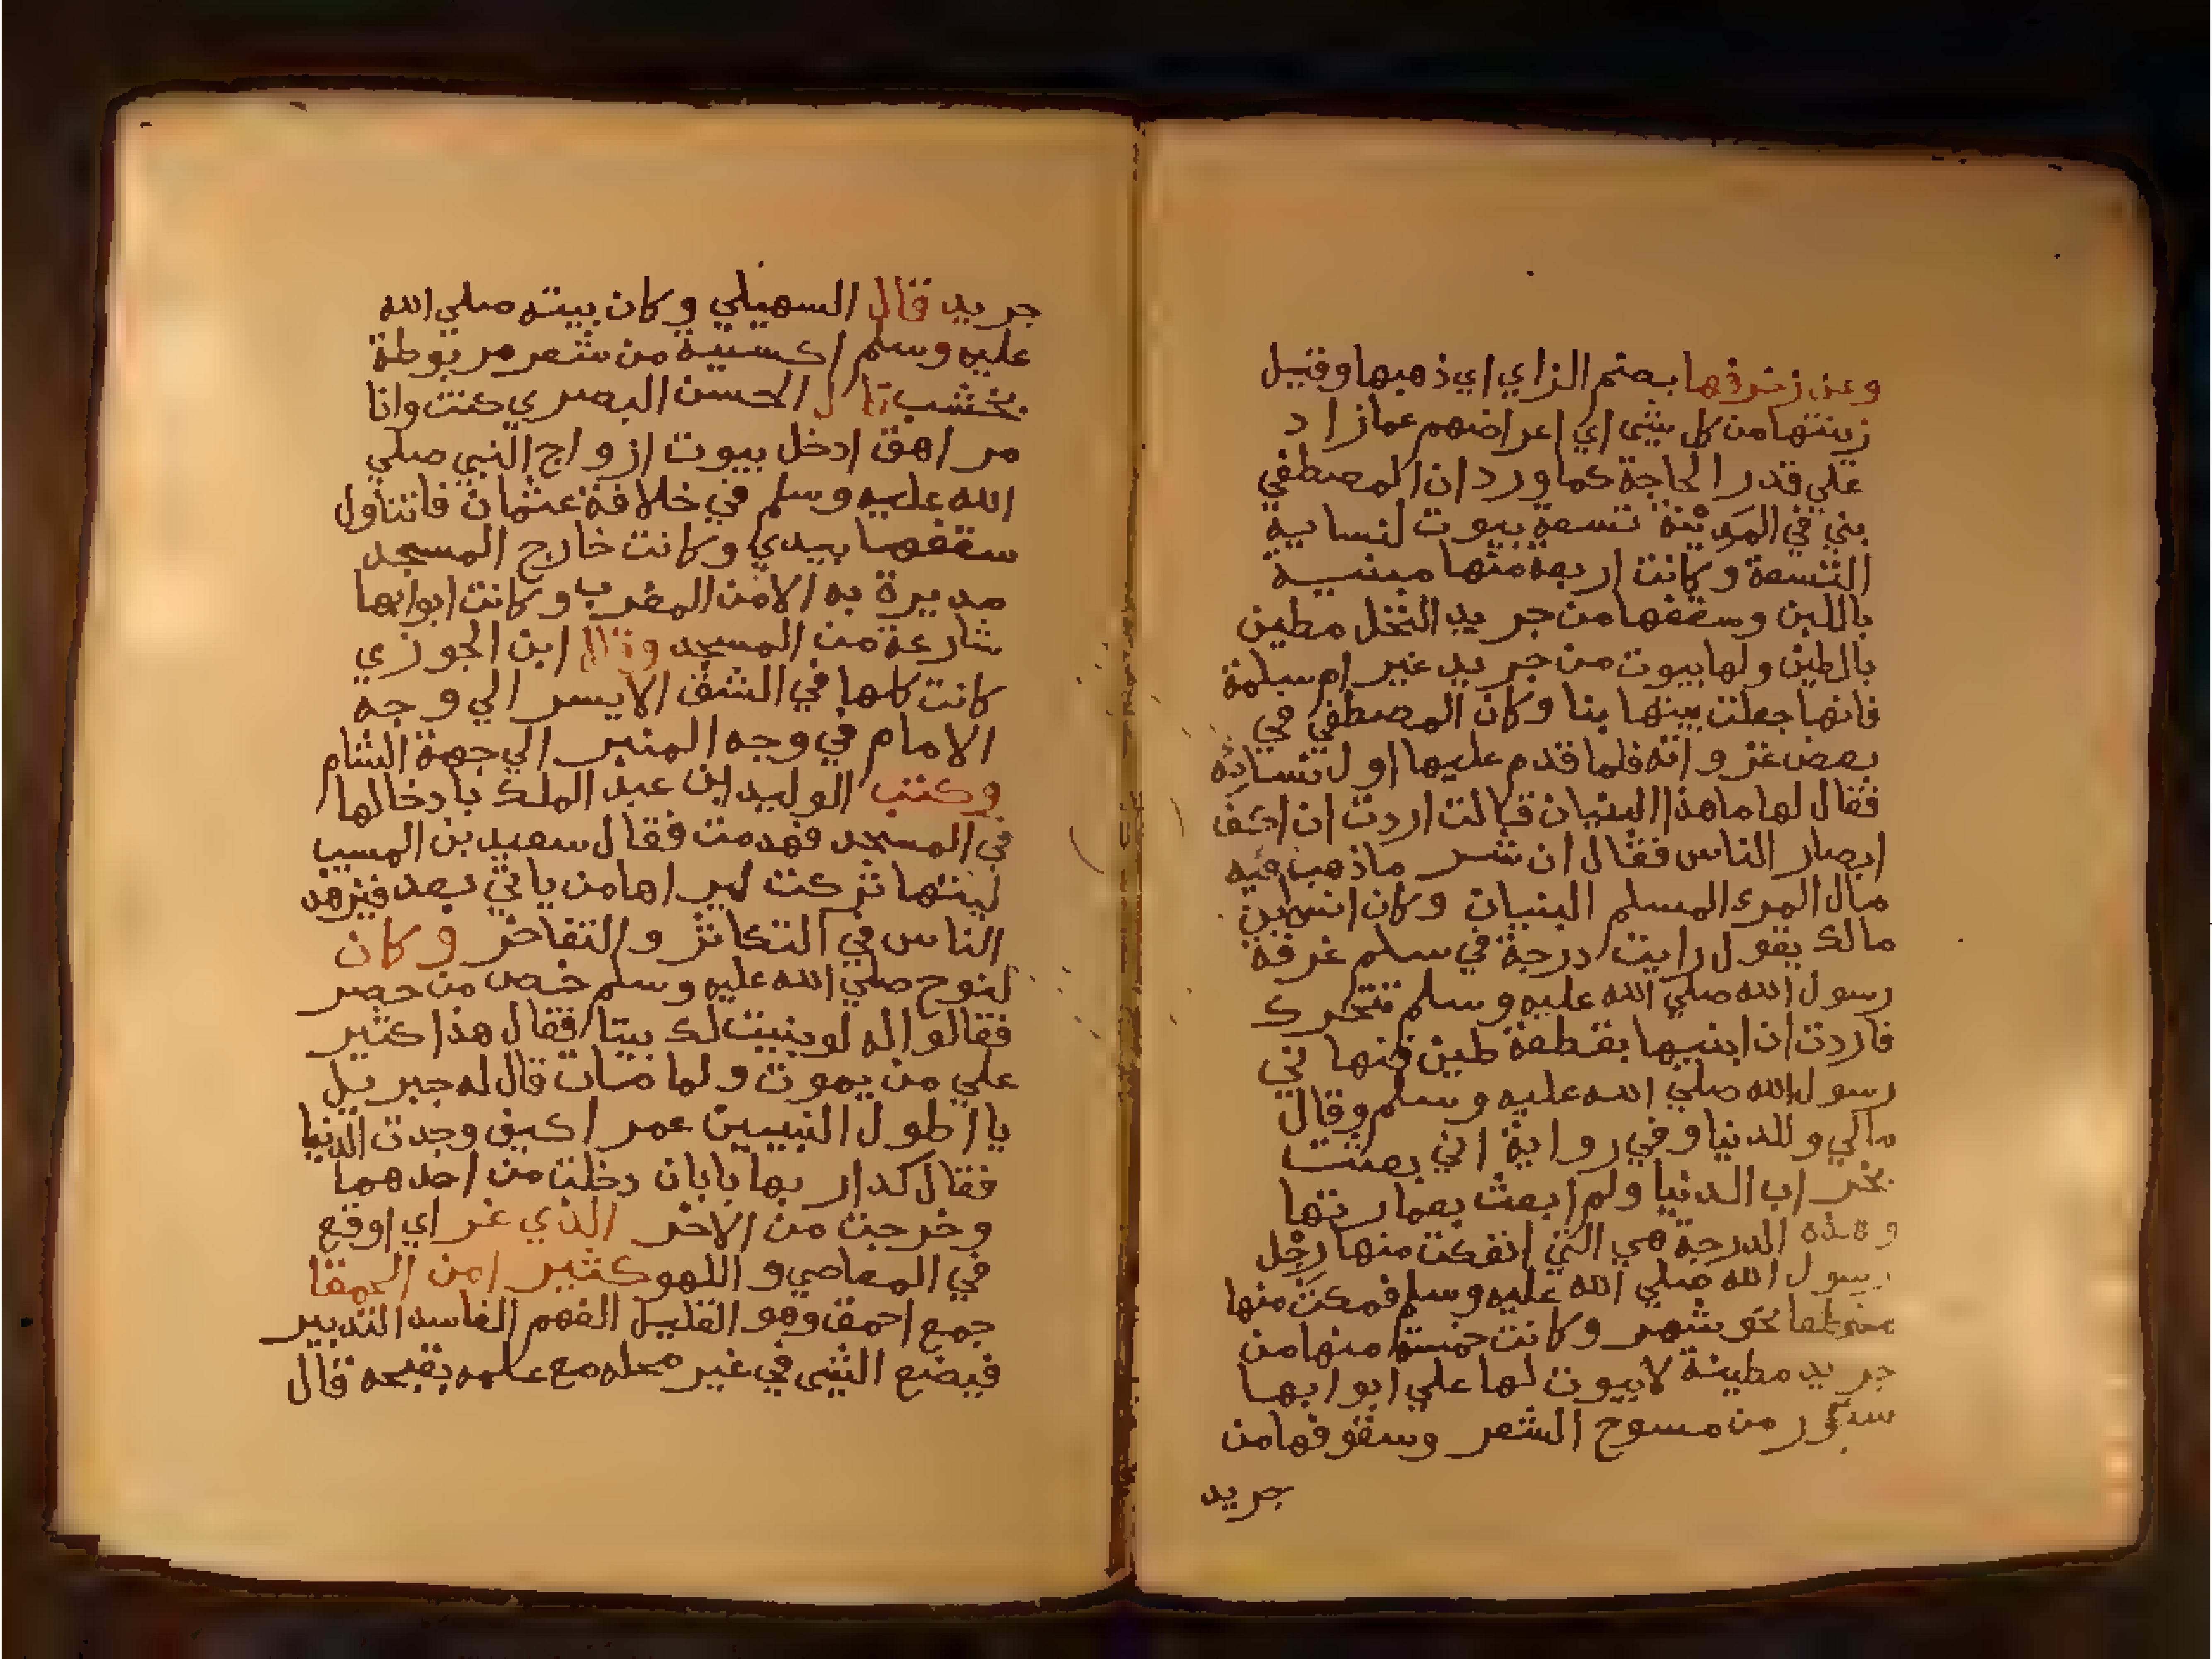 وعن زخرفها بضم الزاي اي ذهبها وقيل
زينتها من كل شيى اي اعراضهم عما زاد
علي قدر الحاجة كما ورد ان المصطفي
بني في المدينة تسعة بيوت لنسايه
التسعة وكانت اربعة منها مبنية
باللبن وسقفها من جريد النخل مطين
بالطين ولها بيوت من جريد غير ام سلمة
فانها جعلت بيتها بنا وكان المصطفي في
بعض غزواته فلما قدم عليها اول نسايه
فقال لها ما هذا البنيان قالت اردت ان اكف
ابصار الناس فقال ان شر ما ذهب فيه
مال المرء المسلم البنيان وكان انس بن
مالك يقول رايت درجة في سلم غرفة
رسول الله صلي الله عليه وسلم تتحرك
فاردت ان ابنيها بقطعة طين فنها ني
رسول الله صلي الله عليه وسلم وقال
مالي وللدنيا وفي رواية اني بعثت
بخراب الدنيا ولم ابعث بعمارتها
وهذه الدرجة هي التي انفكت منها رجل
رسول الله صلي الله عليه وسلم فمكث منها
نحو شهر وكانت خمسة منها من
جريد مطينة لا بيوت لها علي ابوابها
ستور من مسوح الشعر وسقوفها من
جريد
جريد قال السهيلي وكان بيته صلي الله
عليه وسلم اكسية من شعر مربوطة
بخشب قال الحسن البصري كنت وانا
مراهق ادخل بيوت ازواج النبي صلي
الله عليه وسلم في خلافة عثمان فاتناول
سقفها بيدي وكانت خارج المسجد
مديرة به الا من المغرب وكانت ابوابها
شارعة من المسجد وقال ابن الجوزي
كانت كلها في الشق الايسر الي وجه
الامام في وجه المنبر الي جهة الشام
وكتب الوليد ابن عبد الملك بادخالها
في المسجد فهدمت فقال سعيد بن المسيب
ليتها تركت ليراها من ياتي بعد فيزهد
الناس في التكاثر والتفاخر وكان
لنوح صلي الله عليه وسلم خص من حصر
فقالوا له لو بنيت لك بيتا فقال هذا كثير
علي من يموت ولما مات قال له جبريل
يا اطول النبيين عمر اكيف وجدت الدنيا
فقال كدار بها بابان دخلت من احدهما
وخرجت من الاخر الذي غر اي اوقع
في المعاصي واللهو كثير امن الحمقا
جمع احمق وهو القليل الفهم الفاسد التدبير
فيضع الشيى في غير محله مع علمه بقبحه قال